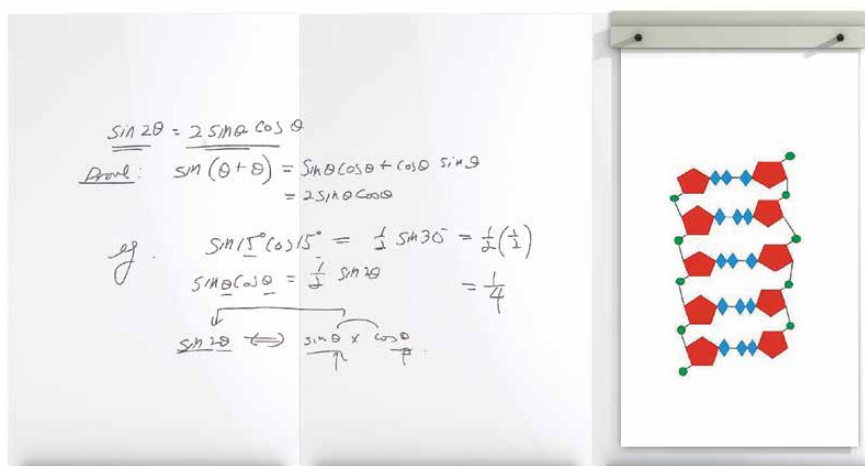 sin 2θ = 2 sinθ cos θ
Prove: sin (θ + θ) = sinθ cosθ + cosθ sinθ
= 2 sinθ cosθ
eg. sin 15° cos 15° = 1/2 sin 30 = 1/2 (1/2)
sinθ cosθ = 1/2 sin 2θ = 1/4
sin 2θ ⟺ sinθ × cosθ